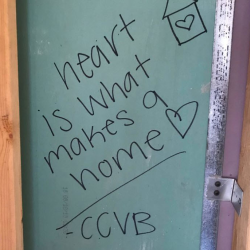 heart
is what
makes a
home
-CCVB